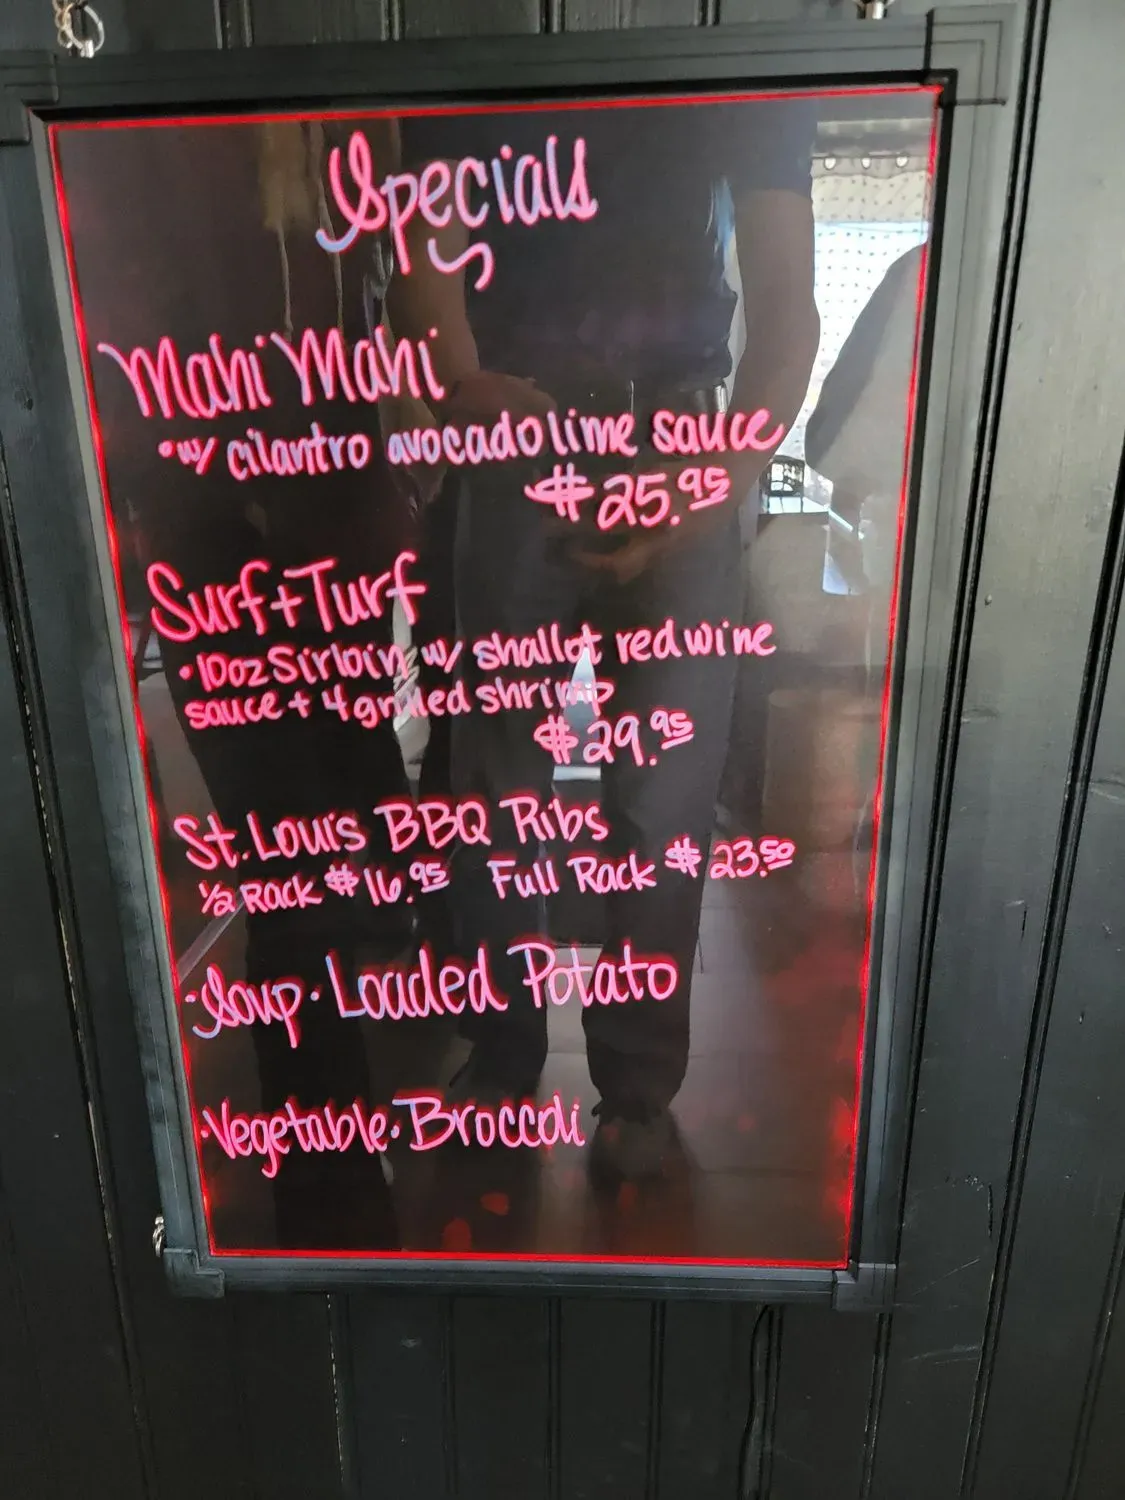 Specials
Mahi Mahi
• w/ cilantro avocado lime sauce
$25.95
Surf + Turf
• 10oz Sirloin w/ shallot red wine
sauce + 4 grilled shrimp
$29.95
St. Louis BBQ Ribs
1/2 Rack $16.95 Full Rack $23.50
• Soup • Loaded Potato
• Vegetable • Broccoli